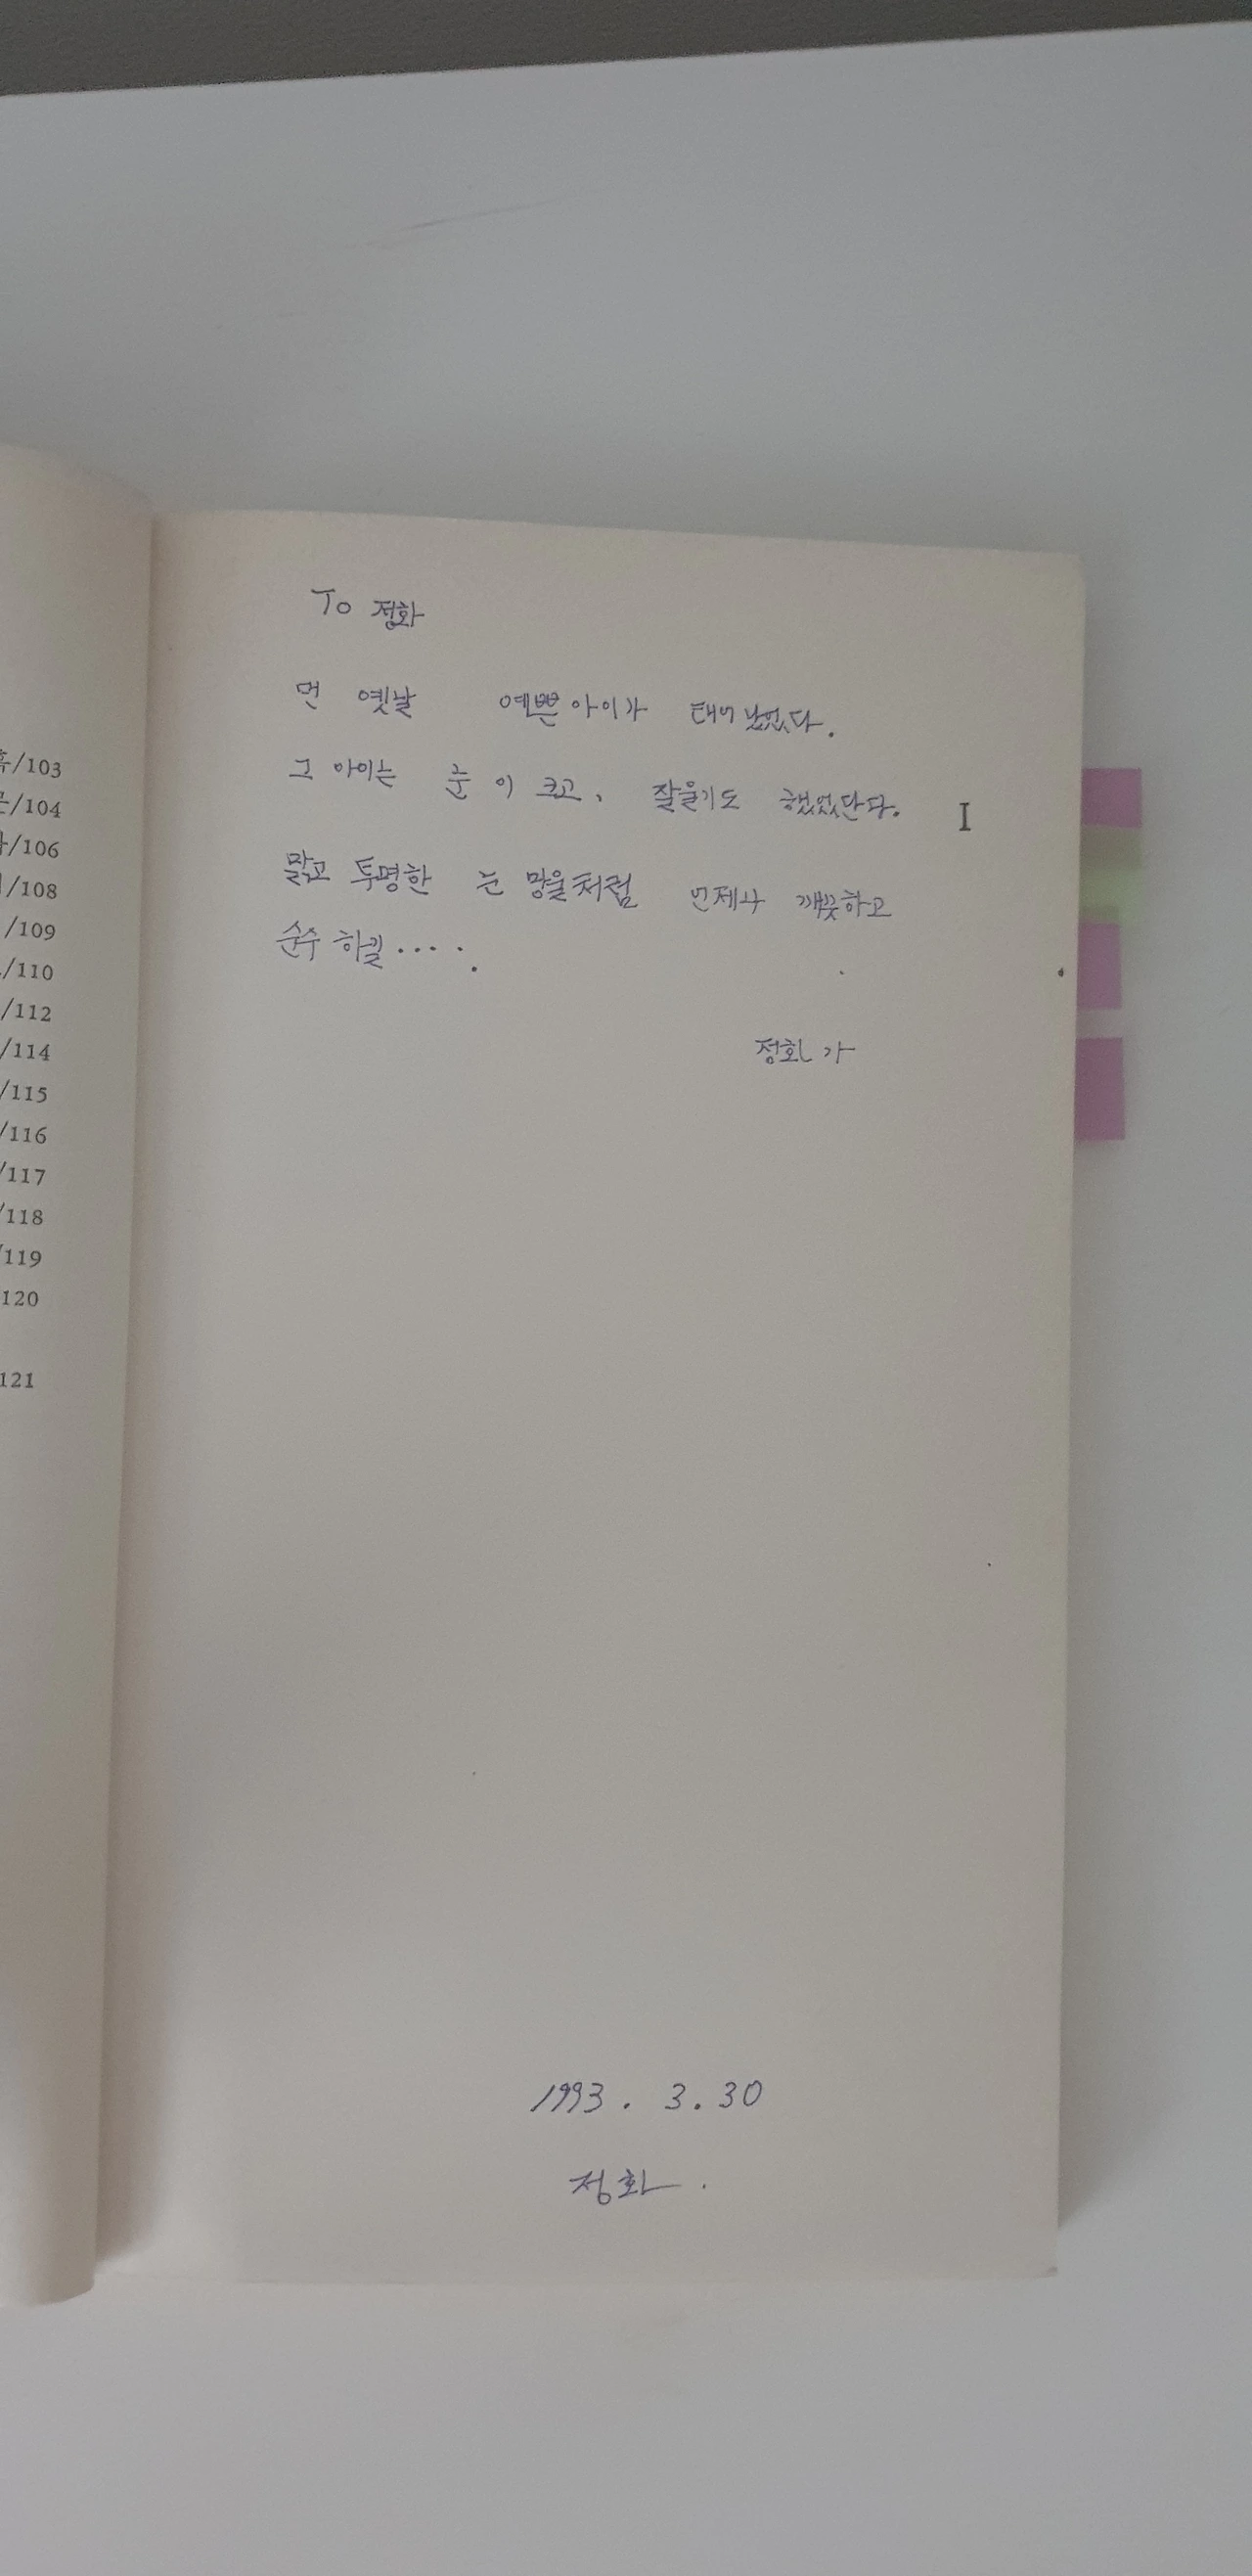 To 정화
먼 옛날 예쁜 아이가 태어났었다.
그 아이는 눈이 크고, 잘울기도 했었단다.
I
맑고 투명한 눈망울처럼 언제나 깨끗하고
순수하길.....
정화가
1993. 3. 30
정화.
/103
/104
/106
/108
/109
/110
/112
/114
/115
/116
/117
/118
/119
120
121